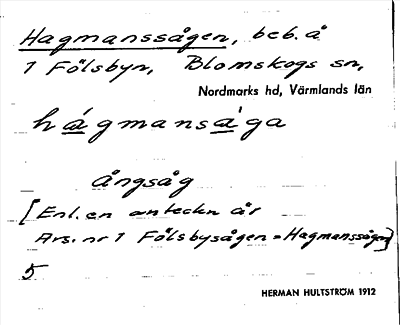 Hagmanssågen, beb. å
1 Fölsbyn, Blomskogs sn,
Nordmarks hd, Värmlands län
hágmansàga
ångsåg
[Enl. en anteckn är
Ars. nr 1 Fölsbysågen = Hagmanssågen]
5
HERMAN HULTSTRÖM 1912